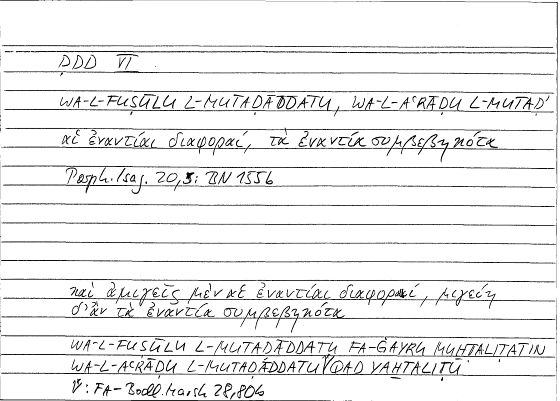 ḌDD VI
WA-L-FUṢŪLU L-MUTAḌĀDDATU, WA-L-AʿRĀḌU L-MUTAḌ'
αἱ ἐναντίαι διαφοραί, τὰ ἐναντία συμβεβηκότα
Porph. Isag. 20,5: BN 155b
καὶ ἀμιγεῖς μὲν αἱ ἐναντίαι διαφοραί, μιγείη
δ' ἂν τὰ ἐναντία συμβεβηκότα
WA-L-FUṢŪLU L-MUTAḌĀDDATU FA-ĠAYRU MUḪTALIṬATIN
WA-L-AʿRĀḌU L-MUTAḌĀDDATU QAD YAḪTALIṬU
FA- Bodl. Marsh 28,80b